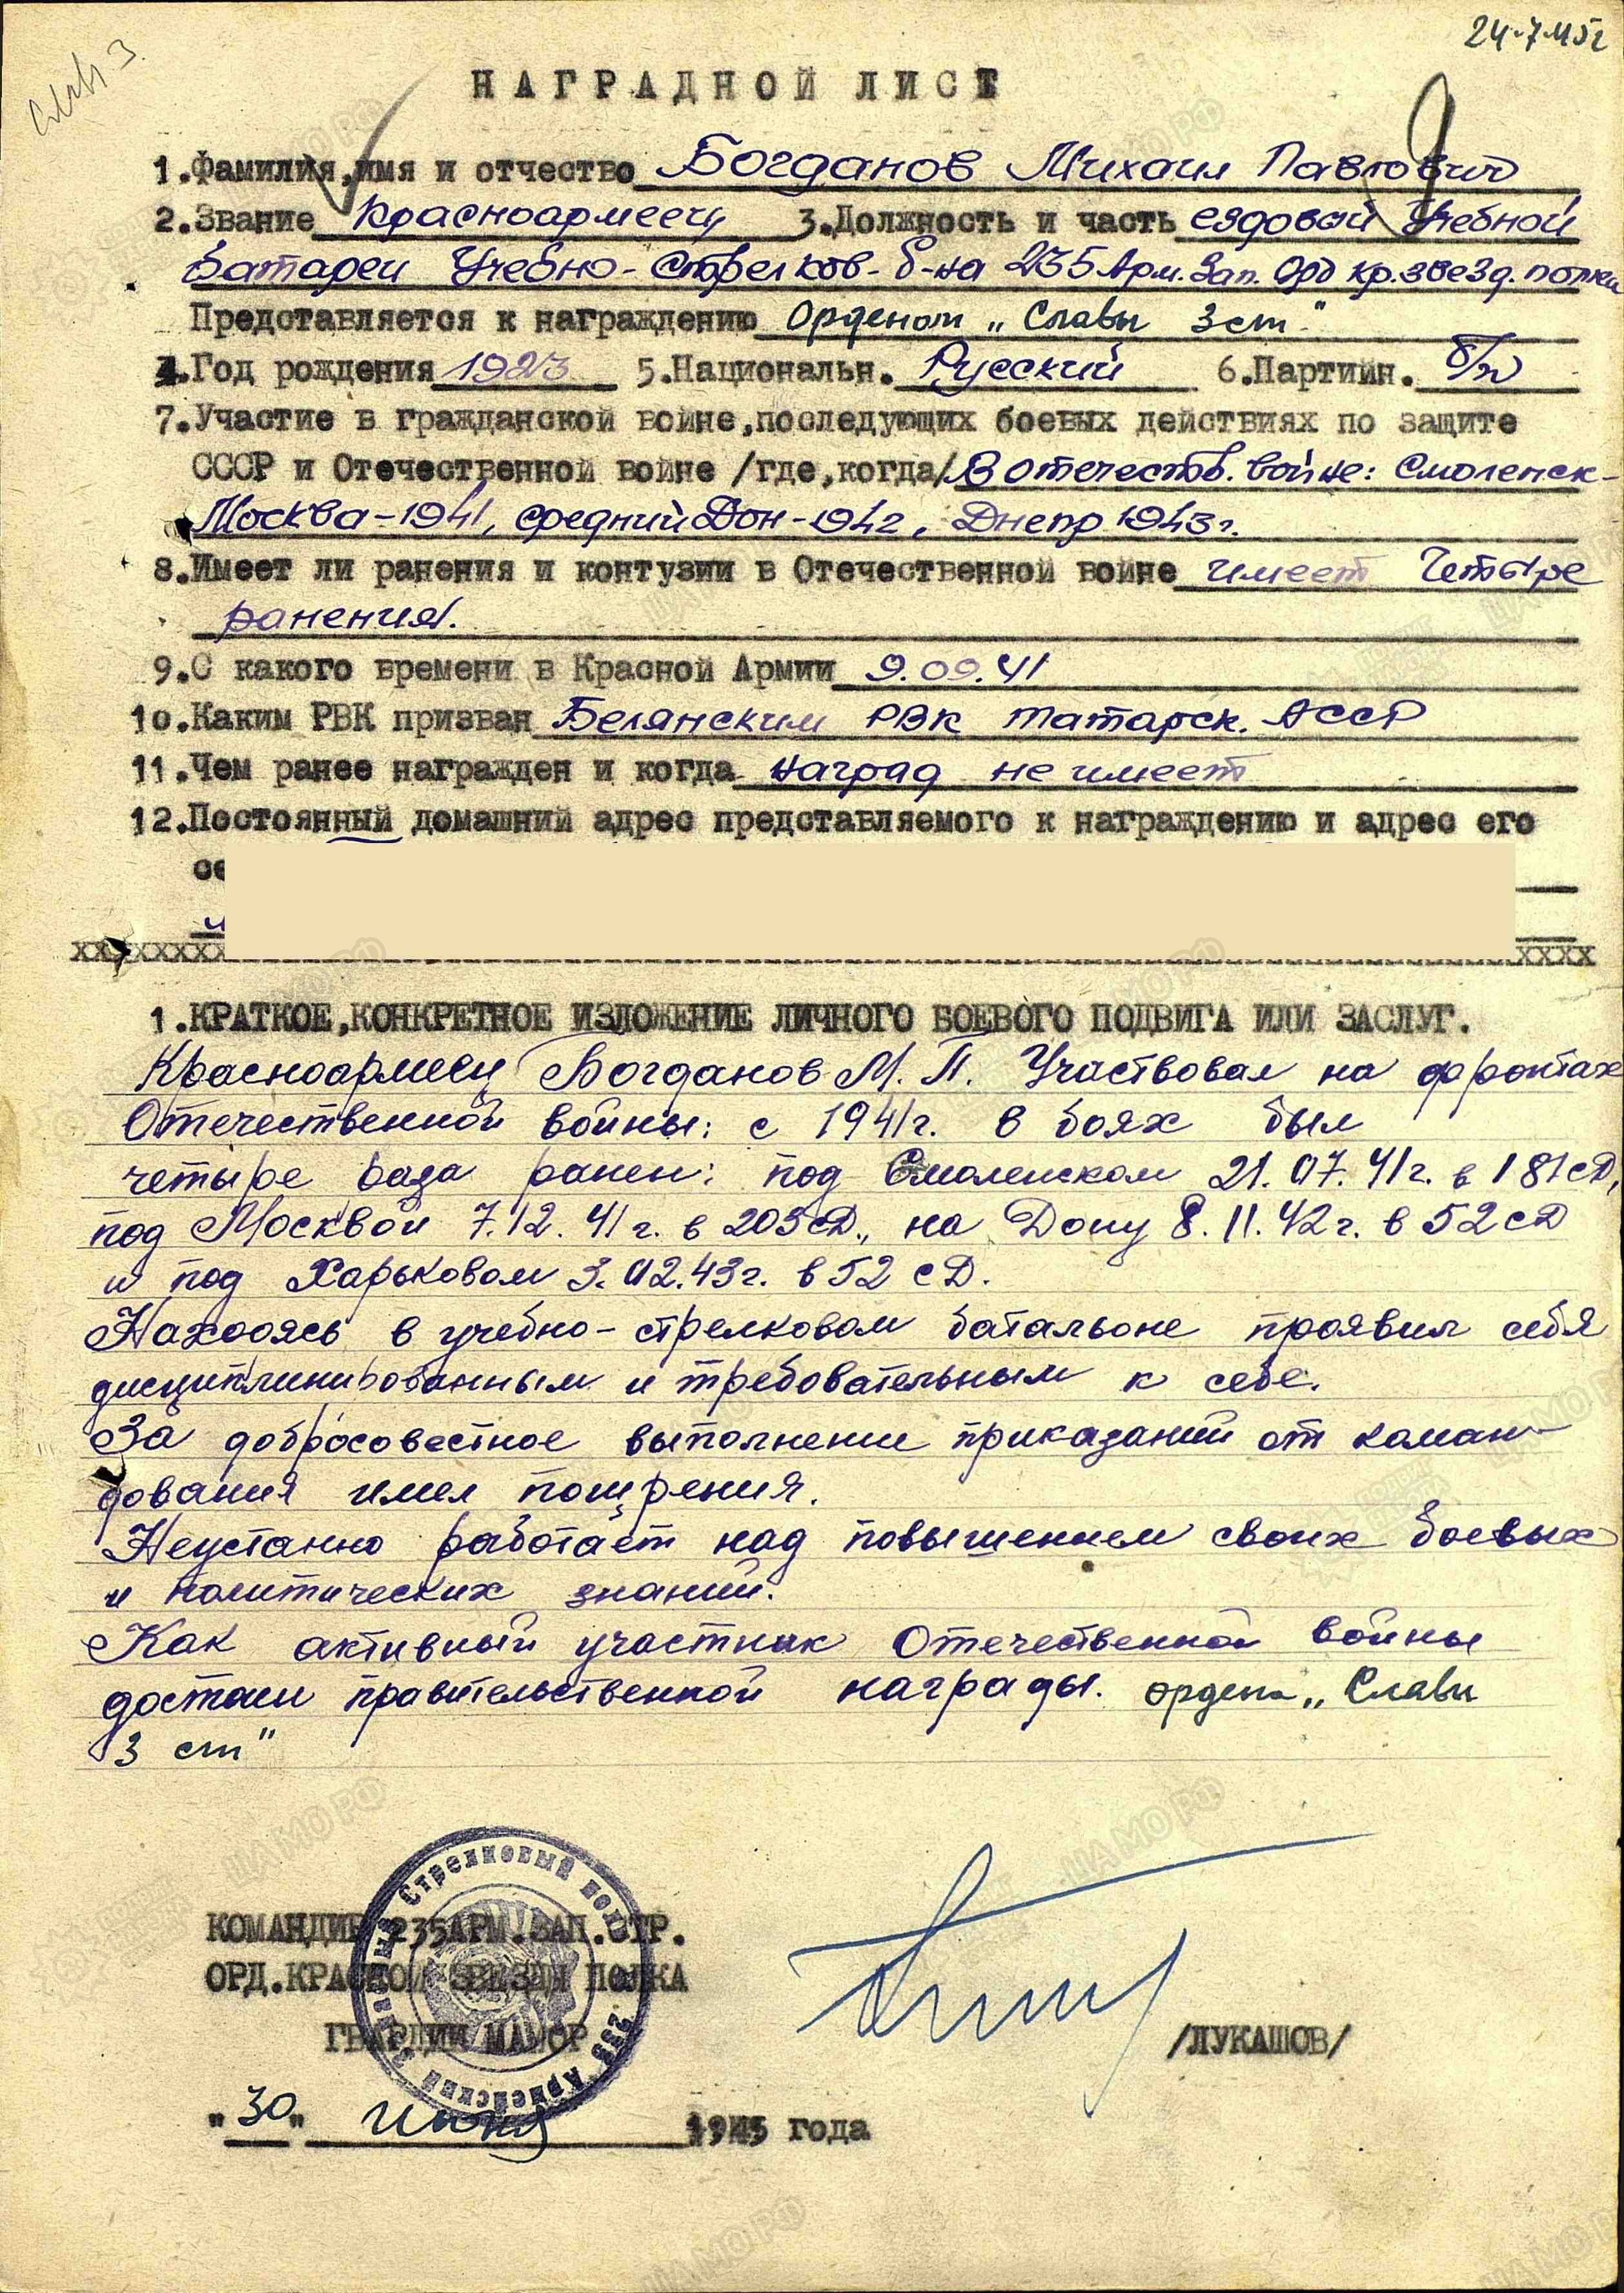 24.7.45г
НАГРАДНОЙ ЛИСТ
1.Фамилия,имя и отчество Богданов Михаил Павлович
2.Звание Красноармеец 3.Должность и часть ездовой учебной
батареи Учебно-Стрелков. б-на 235 Арм. Зап. Орд Кр. звезд. полка
Представляется к награждению Орденом „Славы 3 ст."
4.Год рождения 1923 5.Национальн. Русский 6.Партийн. б/п
7.Участие в гражданской войне,последующих боевых действиях по защите
СССР и Отечественной войне /где,когда/ В отечеств. войне: Смоленск-
Москва-1941, средний Дон-1942, Днепр 1943г.
8.Имеет ли ранения и контузии в Отечественной войне имеет Четыре
ранения.
9.С какого времени в Красной Армии 9.09.41
10.Каким РВК призван Белянским РВК Татарск. АССР
11.Чем ранее награжден и когда наград не имеет
12.Постоянный домашний адрес представляемого к награждению и адрес его
1.КРАТКОЕ,КОНКРЕТНОЕ ИЗЛОЖЕНИЕ ЛИЧНОГО БОЕВОГО ПОДВИГА ИЛИ ЗАСЛУГ.
Красноармеец Богданов М. П. Участвовал на фронтах
Отечественной войны: с 1941г. в боях был
четыре раза ранен: под Смоленском 21.07.41г. в 181 сД,
под Москвой 7.12.41г. в 205 сД., на Дону 8.11.42г. в 52 сД
и под Харьковом 3.02.43г. в 52 сД.
Находясь в учебно-стрелковом батальоне проявил себя
дисциплинированным и требовательным к себе.
За добросовестное выполнение приказаний от коман-
дования имел пощрения.
Неустанно работает над повышением своих боевых
и политических знаний.
Как активный участник Отечественной войны
достоин правительственной награды. ордена „Славы
3 ст"
КОМАНДИР 235 АРМ.ЗАП.СТР.
ОРД.КРАСНОЙ ЗВЕЗДЫ ПОЛКА
ГВАРДИИ МАЙОР
/ЛУКАШОВ/
"30" июня 1945 года